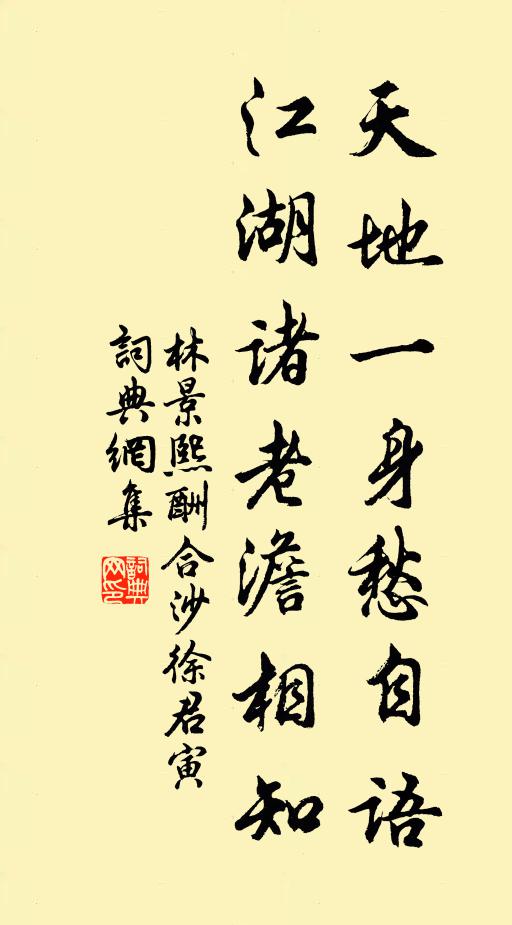 天地一身愁自語
江湖諸老澹相知
林景熙酬合沙徐君寅
詞典網集
詞典網印